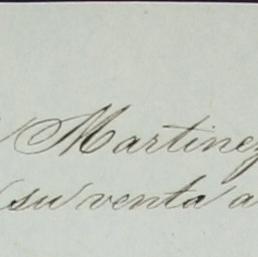 Martinez
su venta a